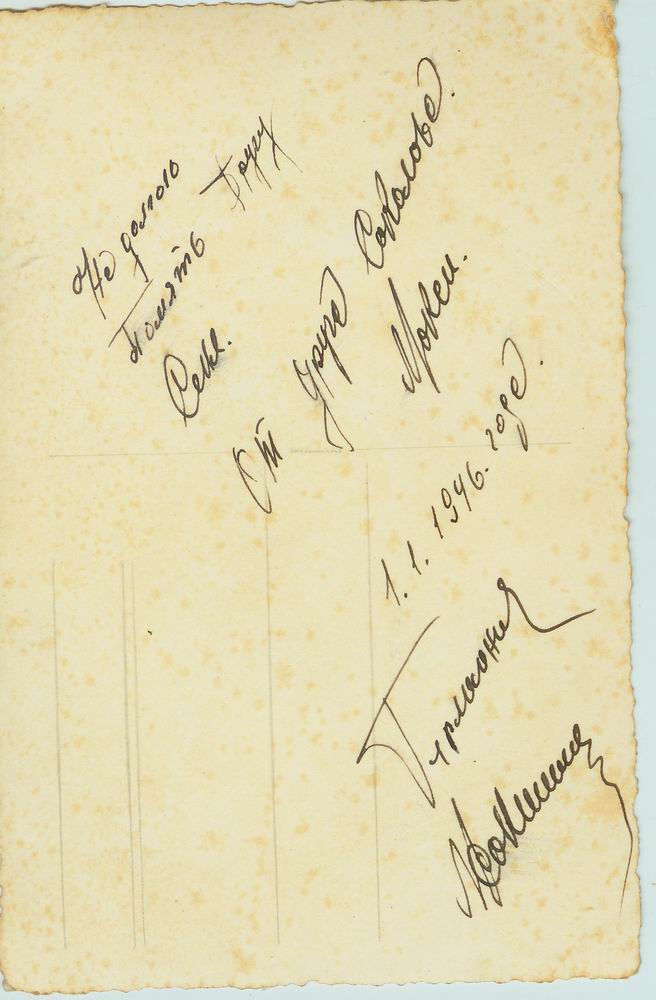 На долгою
Память Другу
Сене.
От друга Соколова
Мокси.
1.1.1946. года.
Германия